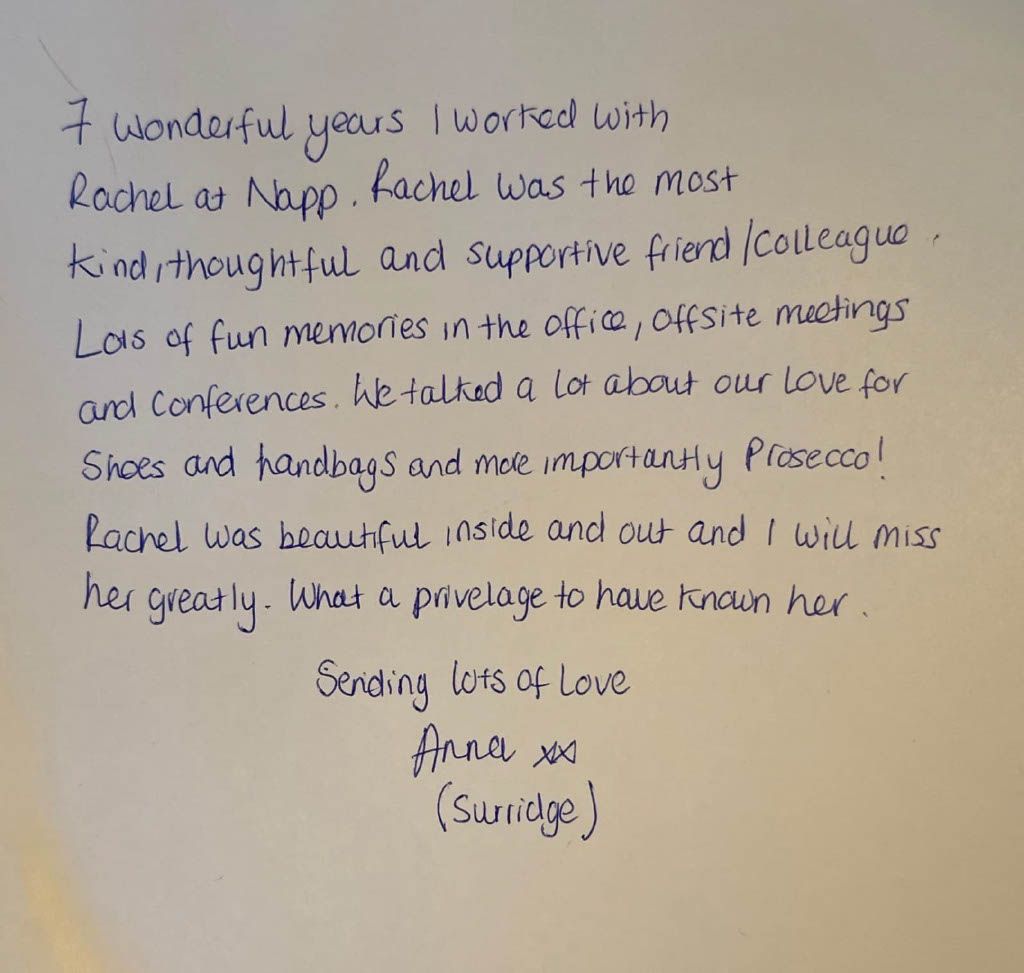 7 wonderful years I worked with
Rachel at Napp. Rachel was the most
kind, thoughtful and supportive friend/colleague.
Lots of fun memories in the office, offsite meetings
and conferences. We talked a lot about our love for
shoes and handbags and more importantly Prosecco!
Rachel was beautiful inside and out and I will miss
her greatly. What a privelage to have known her.
Sending lots of love
Anna xx
(Surridge)